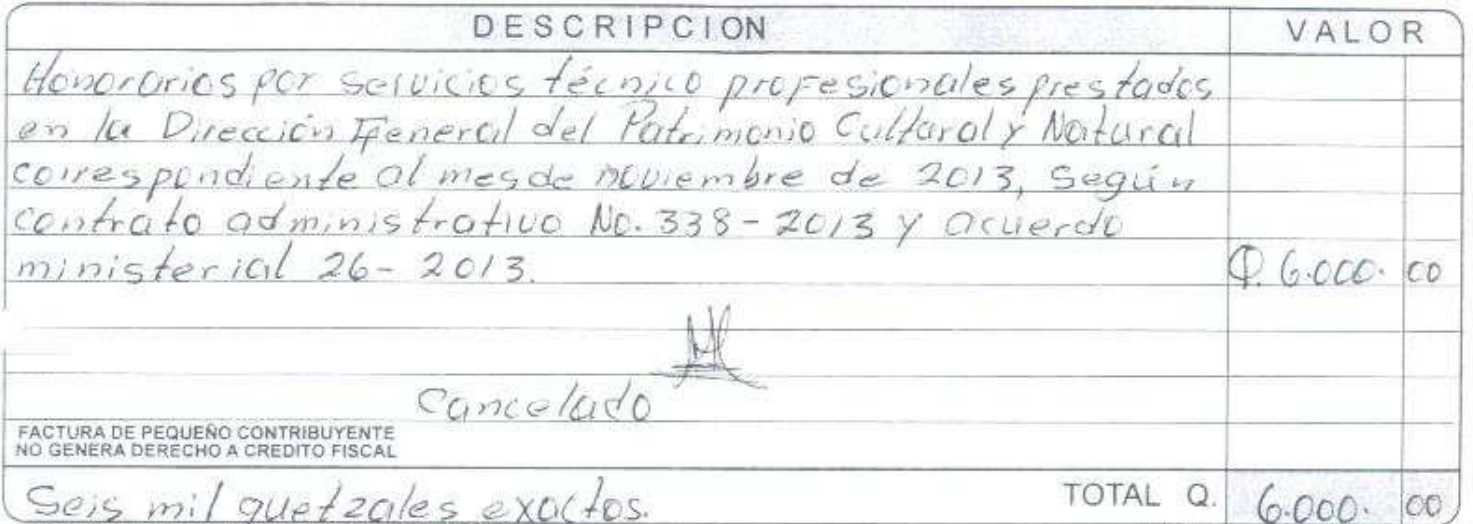 DESCRIPCION VALOR
Honorarios por servicios técnico profesionales prestados
en la Dirección General del Patrimonio Cultural y Natural
correspondiente al mes de noviembre de 2013, Según
contrato administrativo No. 338-2013 y acuerdo
ministerial 26-2013. Q. 6.000. 00
Cancelado
FACTURA DE PEQUEÑO CONTRIBUYENTE
NO GENERA DERECHO A CREDITO FISCAL
Seis mil quetzales exactos. TOTAL Q. 6.000. 00